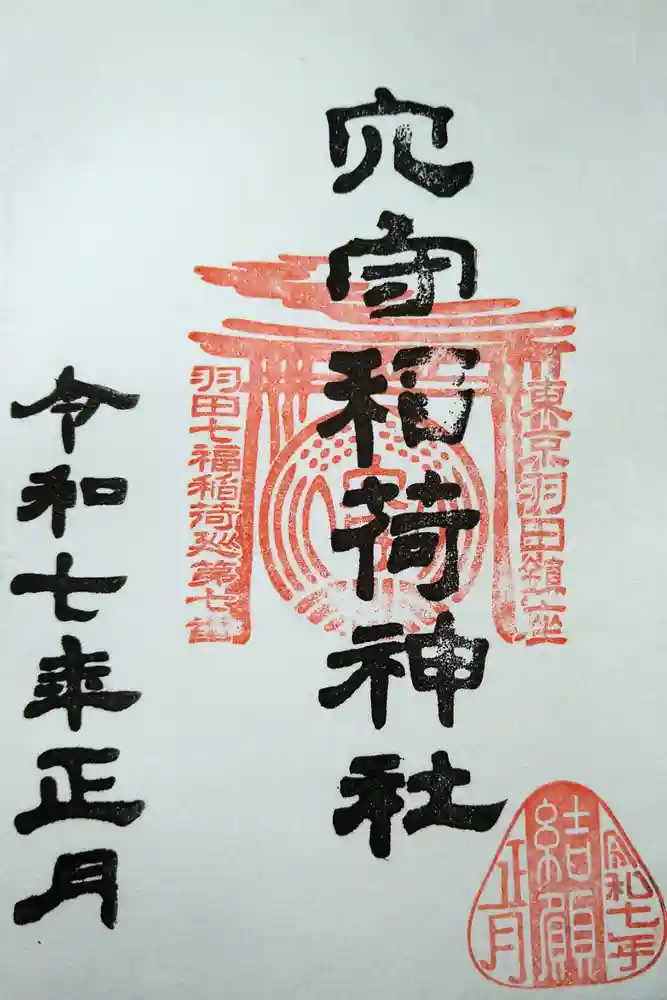 東京羽田鎮座
穴守稲荷神社
羽田七福稲荷巡第七
令和七年正月
令和七年
結願
正月